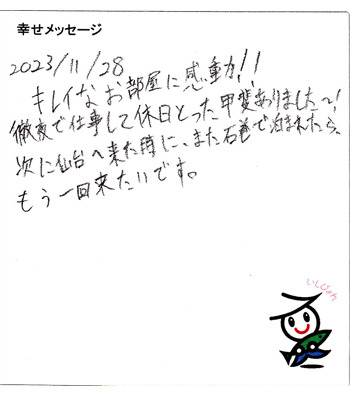 幸せメッセージ
2023/11/28
キレイなお部屋に感動!!
徹夜で仕事して休日とった甲斐ありました〜!
次に仙台へ来た時に、また石巻で泊まれたら、
もう一回来たいです。
いしぴょん